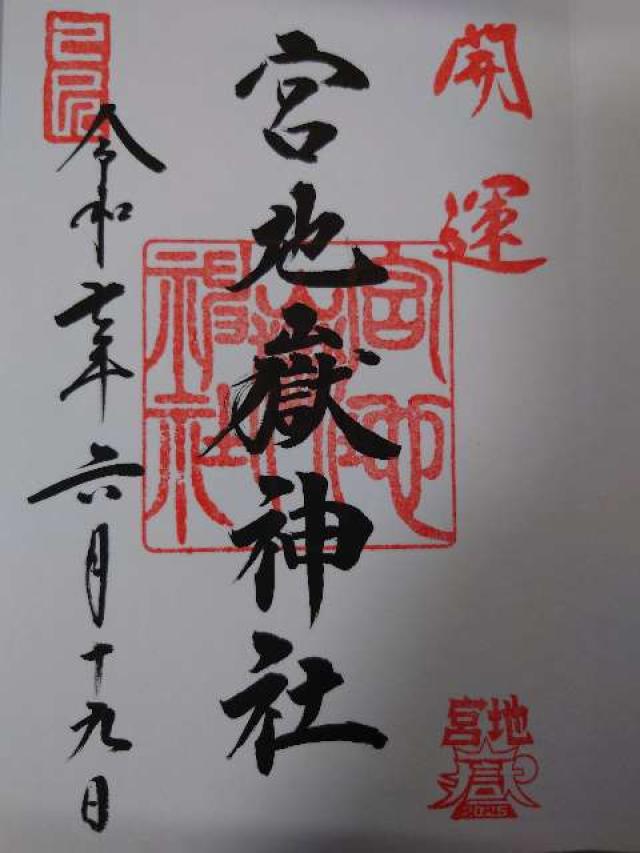 開運
宮地嶽神社
宮地嶽神社
令和七年六月十九日
己巳
宮地
嶽
2025